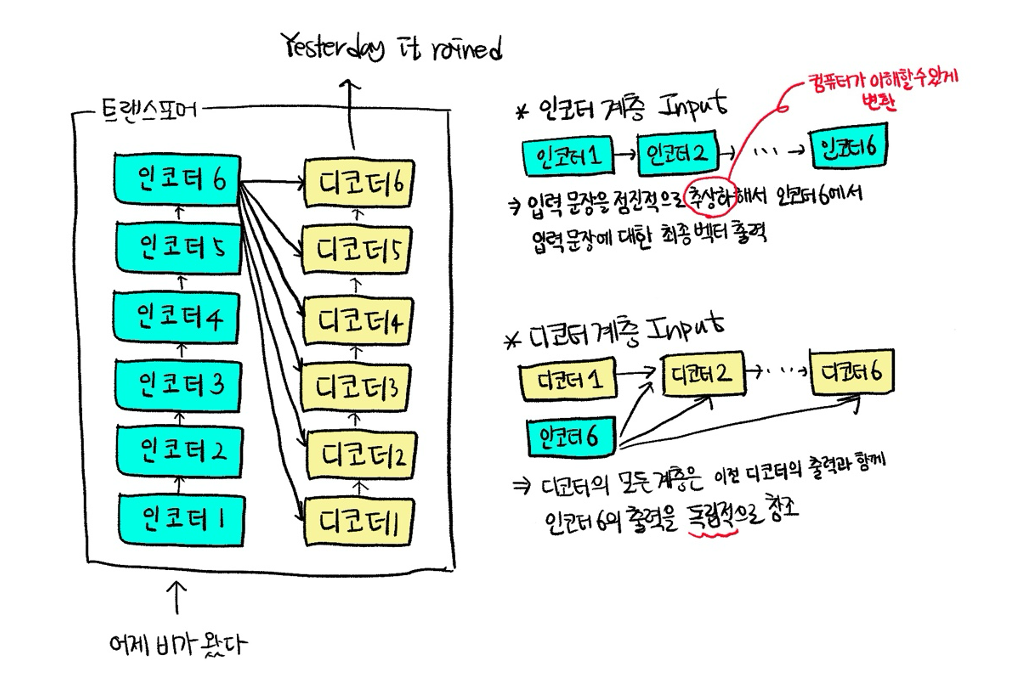 Yesterday it rained
트랜스포머
인코더 6
인코더 5
인코더 4
인코더 3
인코더 2
인코더 1
디코더 6
디코더 5
디코더 4
디코더 3
디코더 2
디코더 1
어제 비가 왔다
* 인코더 계층 Input
컴퓨터가 이해할 수 있게
변환
인코더 1
인코더 2
...
인코더 6
⇒ 입력 문장을 점진적으로 추상화해서 인코더 6에서
입력 문장에 대한 최종 벡터 출력
* 디코더 계층 Input
디코더 1
디코더 2
...
디코더 6
인코더 6
⇒ 디코더의 모든 계층은 이전 디코더의 출력과 함께
인코더 6의 출력을 독립적으로 참조